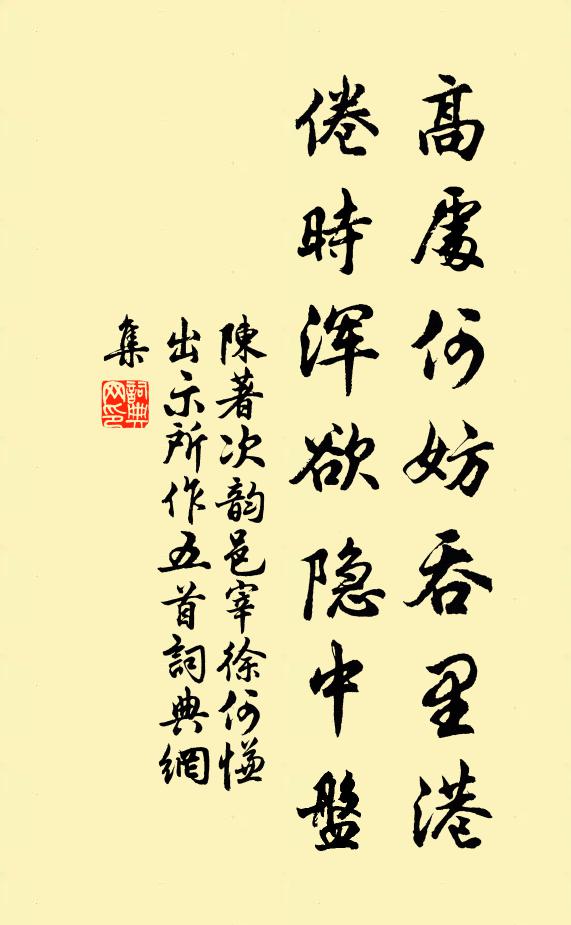 高處何妨吞里港
倦時渾欲隐中盤
陳著次韵邑宰徐何慊
出示所作五首詞典網
集
詞典網印